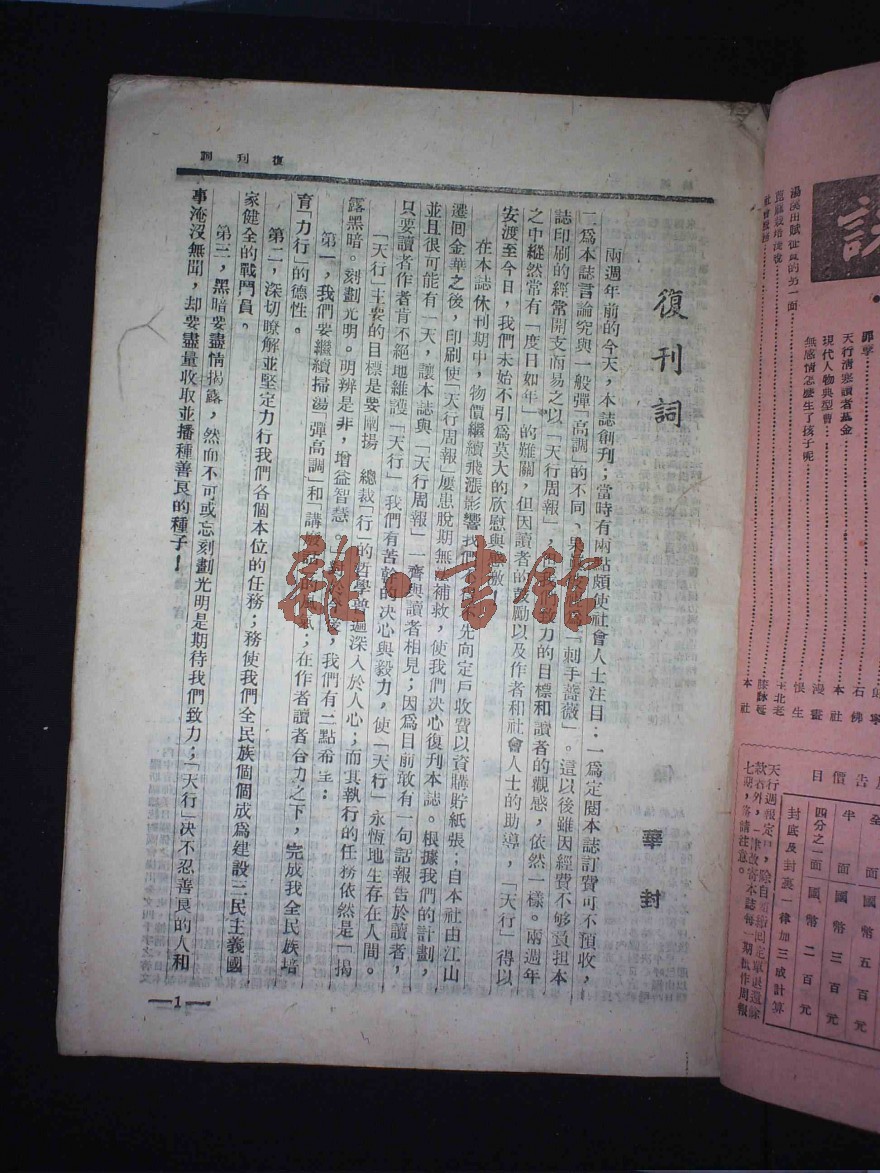 復刊詞
復刊詞
華封
兩週年前的今天,本誌創刊;當時有兩點頗使社會人士注目:一為定閱本誌訂費可不預收,
二為本誌言論究與一般彈「高調」的不同,「刺手薔薇」。這以後雖因經費不够負担本
誌印刷的經常開支而易之以「天行周報」,力的目標和讀者的觀感,依然一樣。兩週年
之中縱然常有「度日如年」的難關,但因讀者的勵以及作者和社會人士的助導,「天行」得以
安渡至今日,我們未始不引為莫大的欣慰與
在本誌休刊期中,物價繼續飛漲影響我們先向定戶收費以資購貯紙張;自本社由江山
遷回金華之後,印刷使「天行周報」屢患脫期無補救,使我們决心復刊本誌。根據我們的計劃,
並且很可能有一天,讓本誌與「天行周報」一齊與讀者相見;因為目前敢有一句話報告於讀者,
只要讀者作者肯不絕地維護「天行」,我們有苦幹的决心與毅力,使「天行」永恆地生存在人間。
「天行」主要的目標是要闡揚 總裁「行」的哲學普遍深入於人心;而其執行的任務依然是「揭
露黑暗。刻劃光明。明辨是非,增益智慧,我們有二點希望:
第一,我們要繼續掃湯「彈高調」和「講;在作者讀者合力之下,完成我全民族培
育「力行」的德性。
第二,深切瞭解並堅定力行我們各個本位的任務;務使我們全民族個個成為建設三民主義國
家健全的戰鬥員。
第三,黑暗要盡情揭露,然而不可或忘刻劃光明是期待我們致力;「天行」决不忍善良的人和
事淹沒無聞,却要盡量收取並播種善良的種子!
—1—
雜·書館
湯溪田賦徵實的另一面
罪孽
石佛
天行清寒讀者基金
本社
現代人物典型曹
漫畫
無感情怎麼生了孩子呢
恨生
王北老
本社
告價目
全面國幣五百元
半面國幣三百元
四分之一面國幣二百元
封底及封裏一律加三成計算
天行週報定戶,除自
款者外,一律改寄本誌每一期抵作周報
七期,請注意。